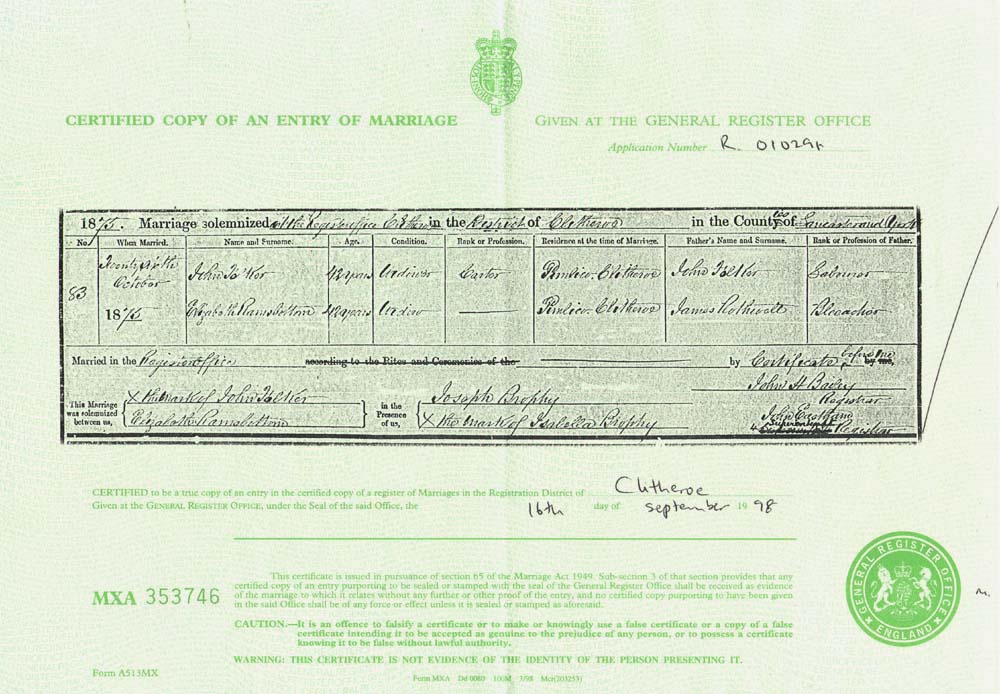 CERTIFIED COPY OF AN ENTRY OF MARRIAGE
GIVEN AT THE GENERAL REGISTER OFFICE
Application Number R. 01029
1875. Marriage solemnized at the Register office Clitheroe in the District of Clitheroe in the County of Lancaster and York
No. When Married. Name and Surname. Age. Condition. Rank or Profession. Residence at the time of Marriage. Father's Name and Surname. Rank or Profession of Father.
83 October 1875
John 42 years Widower Carter Pimlico Clitheroe John Labourer
Elizabeth Ramsbottom 42 years Widow Pimlico Clitheroe James Rothwell Bleacher
Married in the Register office according to the Rites and Ceremonies of the by Certificate before me,
This Marriage was solemnized between us, X the mark of John
Elizabeth Ramsbottom
in the Presence of us, Joseph Brophy
X the mark of Isabella Brophy
John H
Registrar
John Eastham
Superintendent Registrar
CERTIFIED to be a true copy of an entry in the certified copy of a register of Marriages in the Registration District of Clitheroe
Given at the GENERAL REGISTER OFFICE, under the Seal of the said Office, the 16th day of September 1998
MXA 353746
This certificate is issued in pursuance of section 65 of the Marriage Act 1949. Sub-section 3 of that section provides that any
certified copy of an entry purporting to be sealed or stamped with the seal of the General Register Office shall be received as evidence
of the marriage to which it relates without any further or other proof of the entry, and no certified copy purporting to have been given
in the said Office shall be of any force or effect unless it is sealed or stamped as aforesaid.
CAUTION.—It is an offence to falsify a certificate or to make or knowingly use a false certificate or a copy of a false
certificate intending it to be accepted as genuine to the prejudice of any person, or to possess a certificate
knowing it to be false without lawful authority.
WARNING: THIS CERTIFICATE IS NOT EVIDENCE OF THE IDENTITY OF THE PERSON PRESENTING IT.
Form A513MX
Form MXA Dd 0080 100M 3/98 Mcr(203253)
GENERAL REGISTER OFFICE
ENGLAND